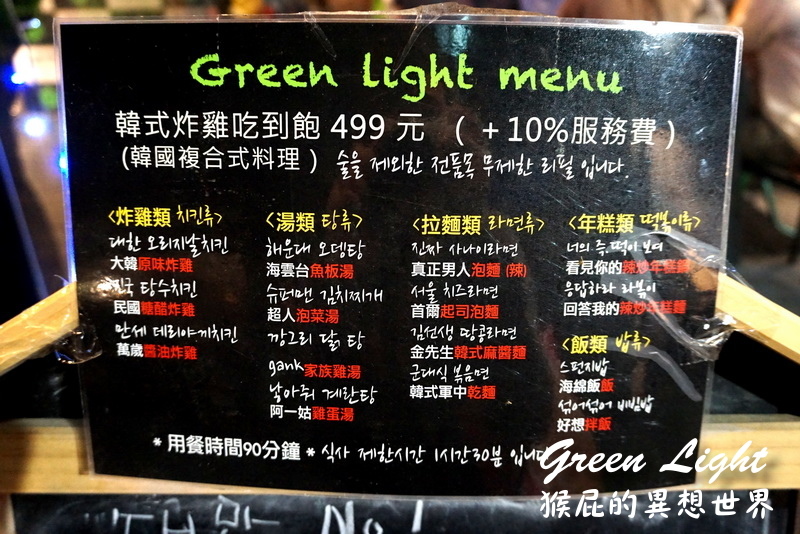 Green light menu
韓式炸雞吃到飽 499 元 （＋10%服務費）
(韓國複合式料理) 술을 제외한 전품목 무제한 리필 입니다.
<炸雞類 치킨류>
대한 오리지날치킨
大韓原味炸雞
민국 탕수치킨
民國糖醋炸雞
만세 데리야께치킨
萬歲醬油炸雞
<湯類 탕류>
해운대 오뎅탕
海雲台魚板湯
슈퍼맨 김치찌개
超人泡菜湯
깡그리 닭 탕
gank家族雞湯
낮아쥐 계란탕
阿一姑雞蛋湯
<拉麵類 라면류>
진짜 사나이라면
真正男人泡麵 (辣)
서울 치즈라면
首爾起司泡麵
김선생 땅콩라면
金先生韓式麻醬麵
군대식 볶음면
韓式軍中乾麵
<年糕類 떡볶이류>
너의 죽.떡이 보여
看見你的辣炒年糕鍋
응답하라 라볶이
回答我的辣炒年糕麵
<飯類 밥류>
스펀지밥
海綿飯飯
섞어섞어 비빔밥
好想拌飯
* 用餐時間90分鐘 * 식사 제한시간 1시간30분 입니다
No 1
Green Light
猴屁的異想世界